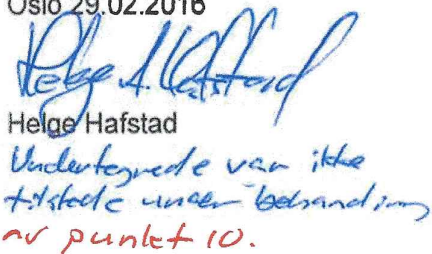 Oslo 29.02.2016
Helge A. Hafstad
Helge Hafstad
Undertegnede var ikke
tilstede under behandling
av punkt 10.